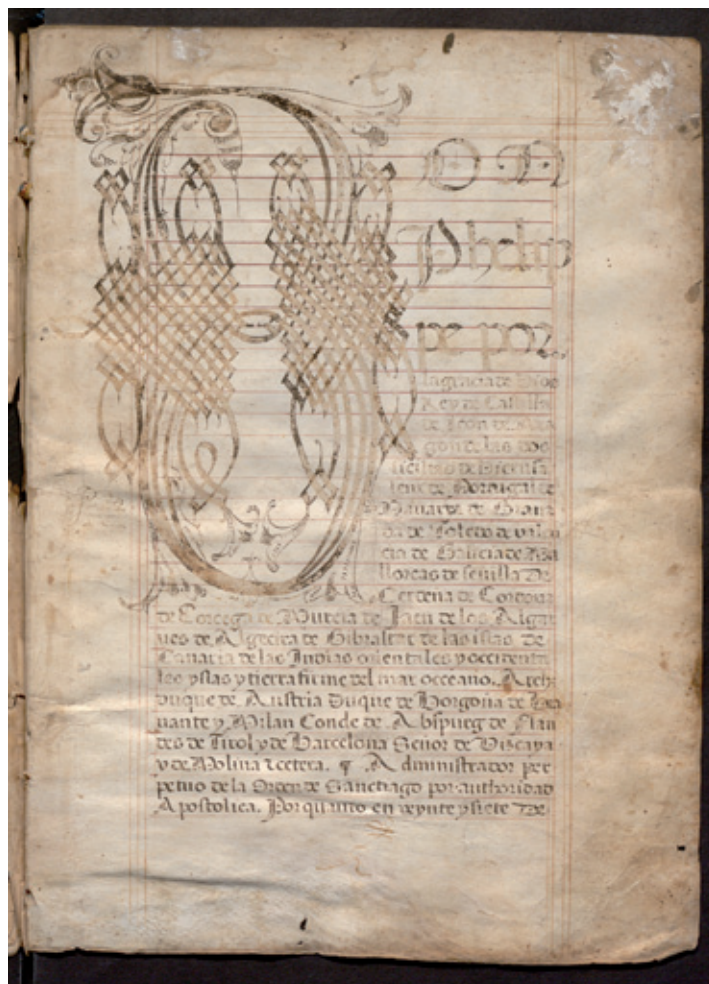 DON
Phelip
pe por
la gracia de Dios
Rey de Castilla
de Leon de Ara
gon de las dos
sicilias de Hierusa
lem de Portugal de
Navarra de Grana
da de Toledo de valen
cia de Galicia de Ma
llorcas de sevilla De
Cerdena de Cordova
de Corcega de Murcia de Jaen de los Algar
ves de Algecira de Gibraltar de las islas de
Canaria de las Indias orientales y occidenta
les yslas y tierra firme del mar occeano. Archi
duque de Austria Duque de Borgoña de Bra
uante y Milan Conde de Abspurg de Flan
des de Tirol y de Barcelona Señor de Viscaya
y de Molina &cetera. ¶ Administrador per
petuo de la Orden de Sanctiago por authoridad
Apostolica. Por quanto en veynte y siete De